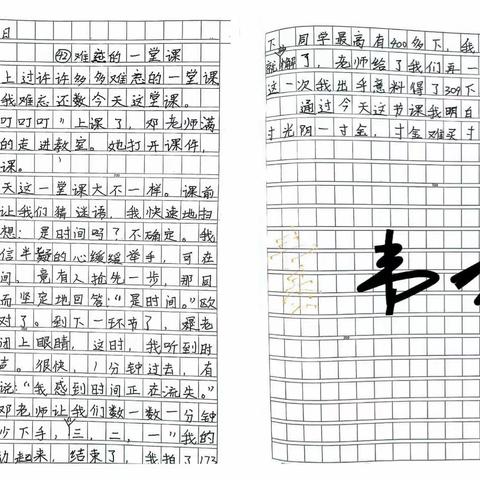 日
㊷难忘的一堂课
上过许许多多难忘的一堂课
我难忘还数今天这堂课。
叮叮叮”上课了，邓老师满
的走进教室。她打开课件，
课。
天这一堂课大不一样。课前
让我们猜谜语，我快速地扫
想：是时间吗？不确定。我
信半疑的心缓缓举手，可在
间，竟有人抢先一步，那回
而坚定地回答：“是时间。”欧
对了。到下一环节了，邓老
闭上眼睛，这时，我听到时
声。很快，1分钟过去，有
说：“我感到时间正在流失。”
邓老师让我们数一数一分钟
少下手，三，二，一“我的
动起来，结束了，我拍了173
下，同学最高有400多下，我
就懈了，老师给了我们再一
这一次我出乎意料得了309下
通过今天这节课我明白
寸光阴一寸金，寸金难买寸
韦